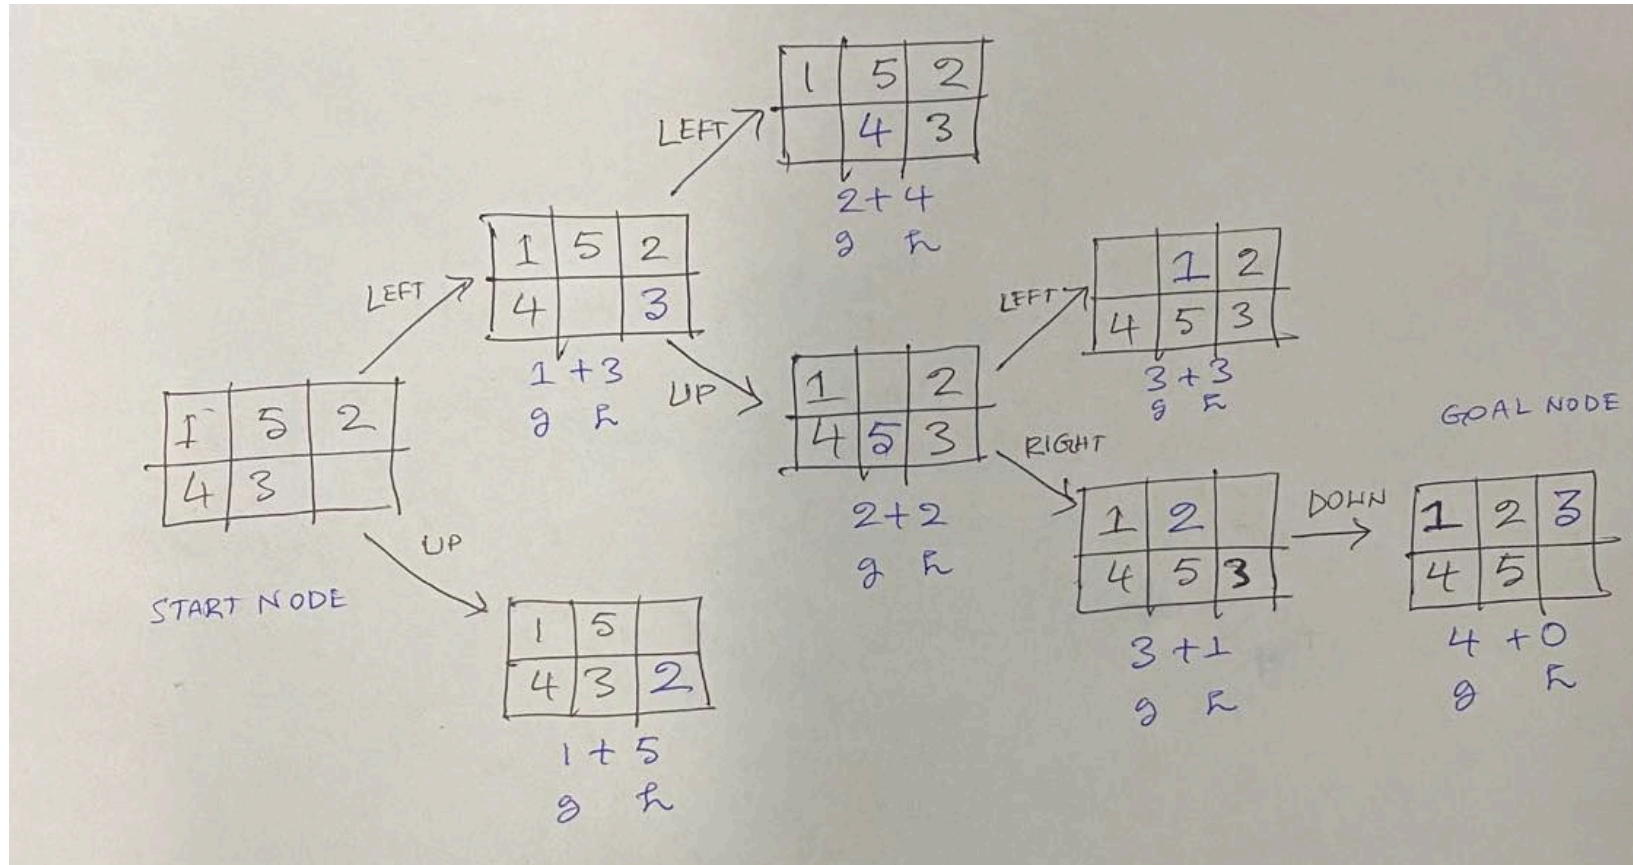 1 5 2
4 3
START NODE
LEFT
1 5 2
4 3
1 + 3
g h
UP
1 5
4 3 2
1 + 5
g h
LEFT
1 5 2
4 3
2 + 4
g h
UP
1 2
4 5 3
2 + 2
g h
LEFT
1 2
4 5 3
3 + 3
g h
RIGHT
1 2
4 5 3
3 + 1
g h
DOWN
GOAL NODE
1 2 3
4 5
4 + 0
g h